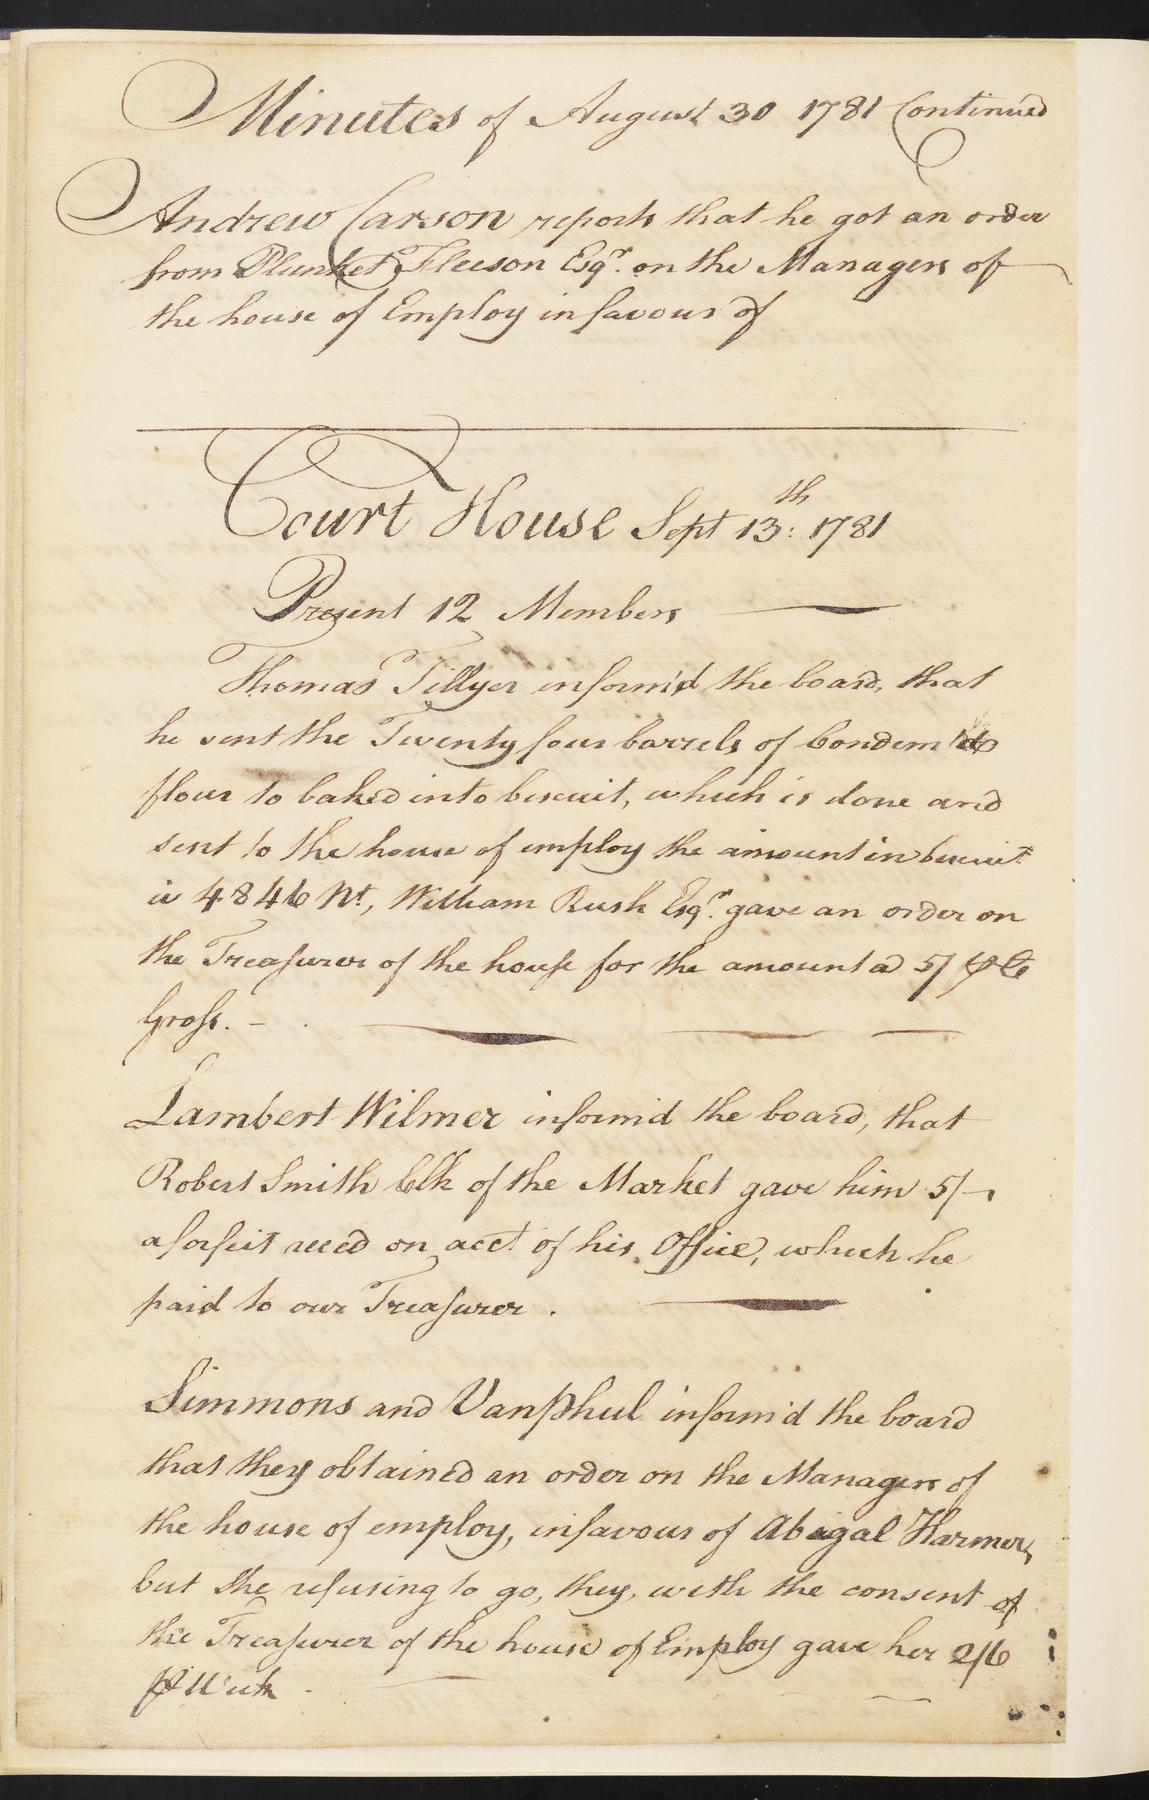 Minutes of August 30 1781 Continued
Andrew Carson reports that he got an order
from Plunket Fleeson Esqr. on the Managers of
the house of Employ in favour of
Court House Sept 13th: 1781
Present 12 Members
Thomas Tillyer inform'd the board, that
he sent the Twenty four barrels of Condem'd
flour to baked into biscuit, which is done and
sent to the house of employ the amount in biscuit
is 4846 Nt, William Rush Esqr. gave an order on
the Treasurer of the house for the amount a 5/ ⅌ Ct
Gross. -
Lambert Wilmer inform'd the board, that
Robert Smith Clk of the Market gave him 5/-,
a forfeit rec'd on acct. of his Office, which he
paid to our Treasurer.
Simmons and Vanphul inform'd the board
that they obtained an order on the Managers of
the house of employ, in favour of Abigal Harmer,
but she refusing to go, they, with the consent of
the Treasurer of the house of Employ gave her 2/6
⅌ Week -